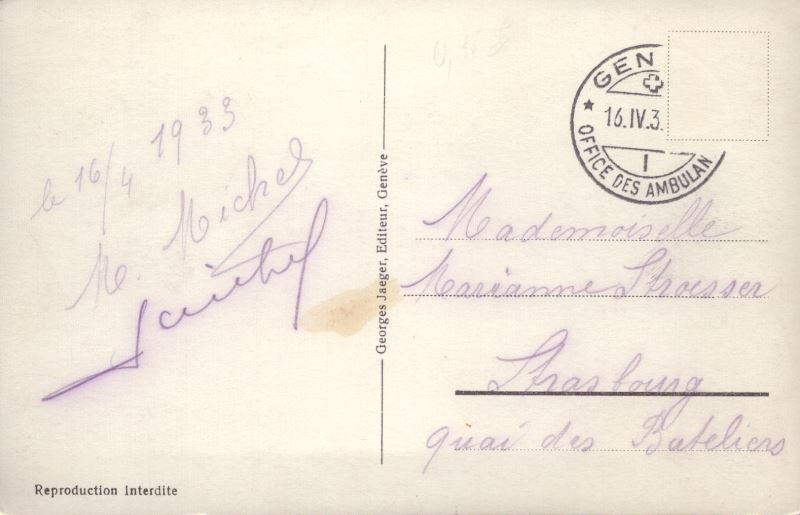 le 16/4 1933
M. Michel
Reproduction Interdite
Georges Jaeger, Editeur, Genève
GEN
16.IV.3
1
OFFICE DES AMBULAN
Mademoiselle
Marianne Stroesser
Strasbourg
quai des Bateliers